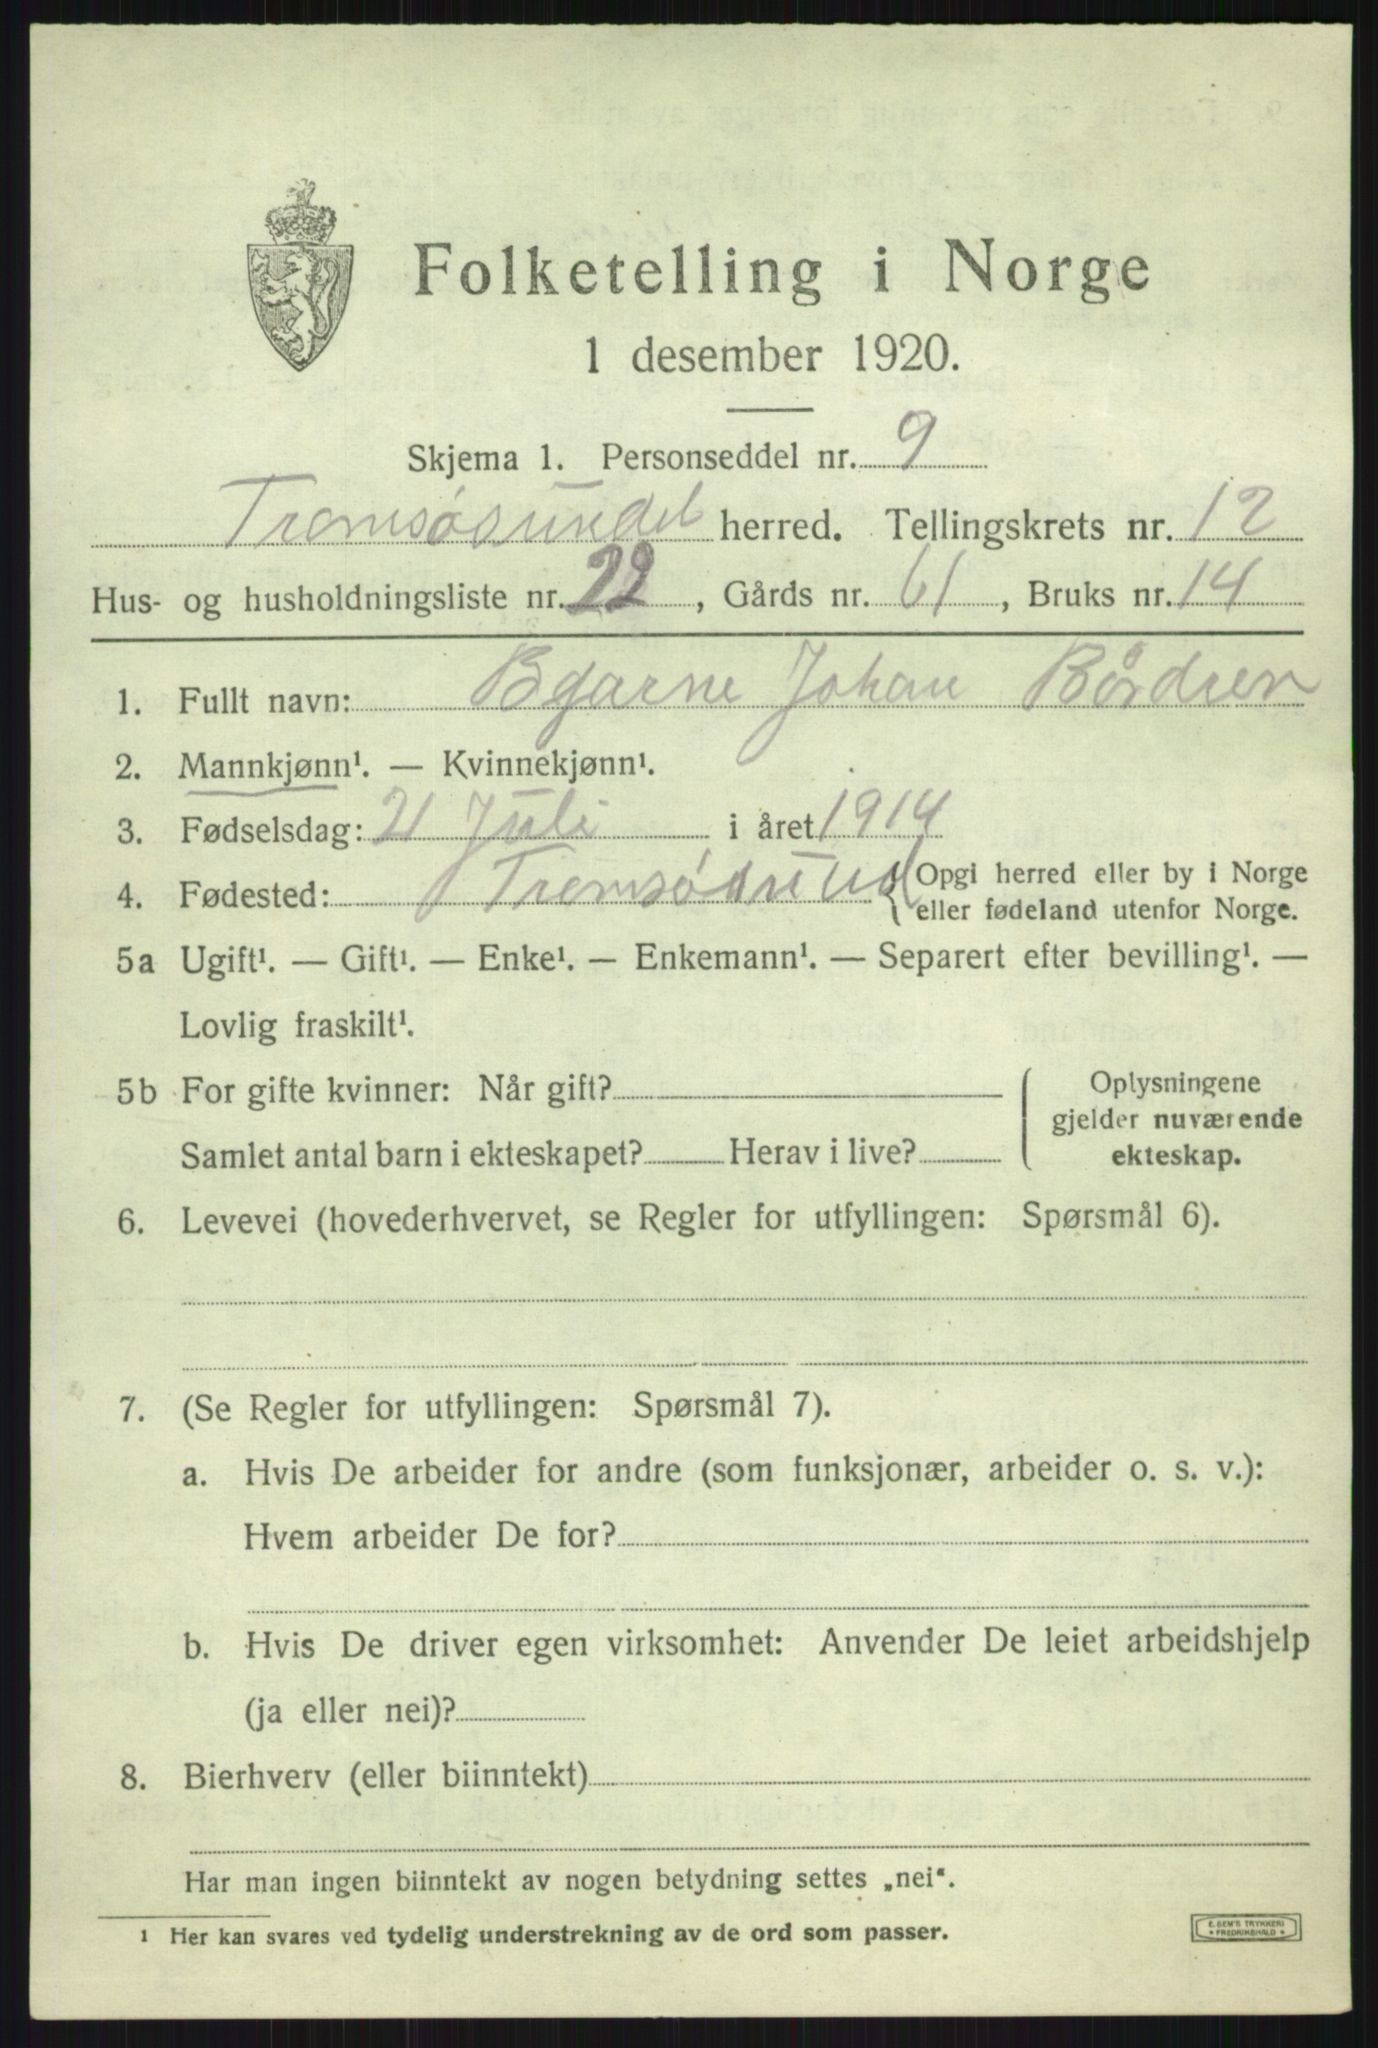 Folketelling i Norge
1 desember 1920.
Skjema 1. Personseddel nr. 9
Tromsøsundet herred. Tellingskrets nr. 12
Hus- og husholdningsliste nr. 22, Gårds nr. 61, Bruks nr. 14
1. Fullt navn: Bjarne Johan
2. Mannkjønn¹. — Kvinnekjønn¹.
3. Fødselsdag: 21 Juli i året 1914
4. Fødested: Tromsøsund { Opgi herred eller by i Norge
eller fødeland utenfor Norge.
5a Ugift¹. — Gift¹. — Enke¹. — Enkemann¹. — Separert efter bevilling¹. —
Lovlig fraskilt¹.
5b For gifte kvinner: Når gift? { Oplysningene
gjelder nuværende
Samlet antal barn i ekteskapet? Herav i live? ekteskap.
6. Levevei (hovederhvervet, se Regler for utfyllingen: Spørsmål 6).
7. (Se Regler for utfyllingen: Spørsmål 7).
a. Hvis De arbeider for andre (som funksjonær, arbeider o. s. v.):
Hvem arbeider De for?
b. Hvis De driver egen virksomhet: Anvender De leiet arbeidshjelp
(ja eller nei)?
8. Bierhverv (eller biinntekt)
Har man ingen biinntekt av nogen betydning settes „nei“.
¹ Her kan svares ved tydelig understrekning av de ord som passer.
E. SEM'S TRYKKERI
FREDRIKSHALD